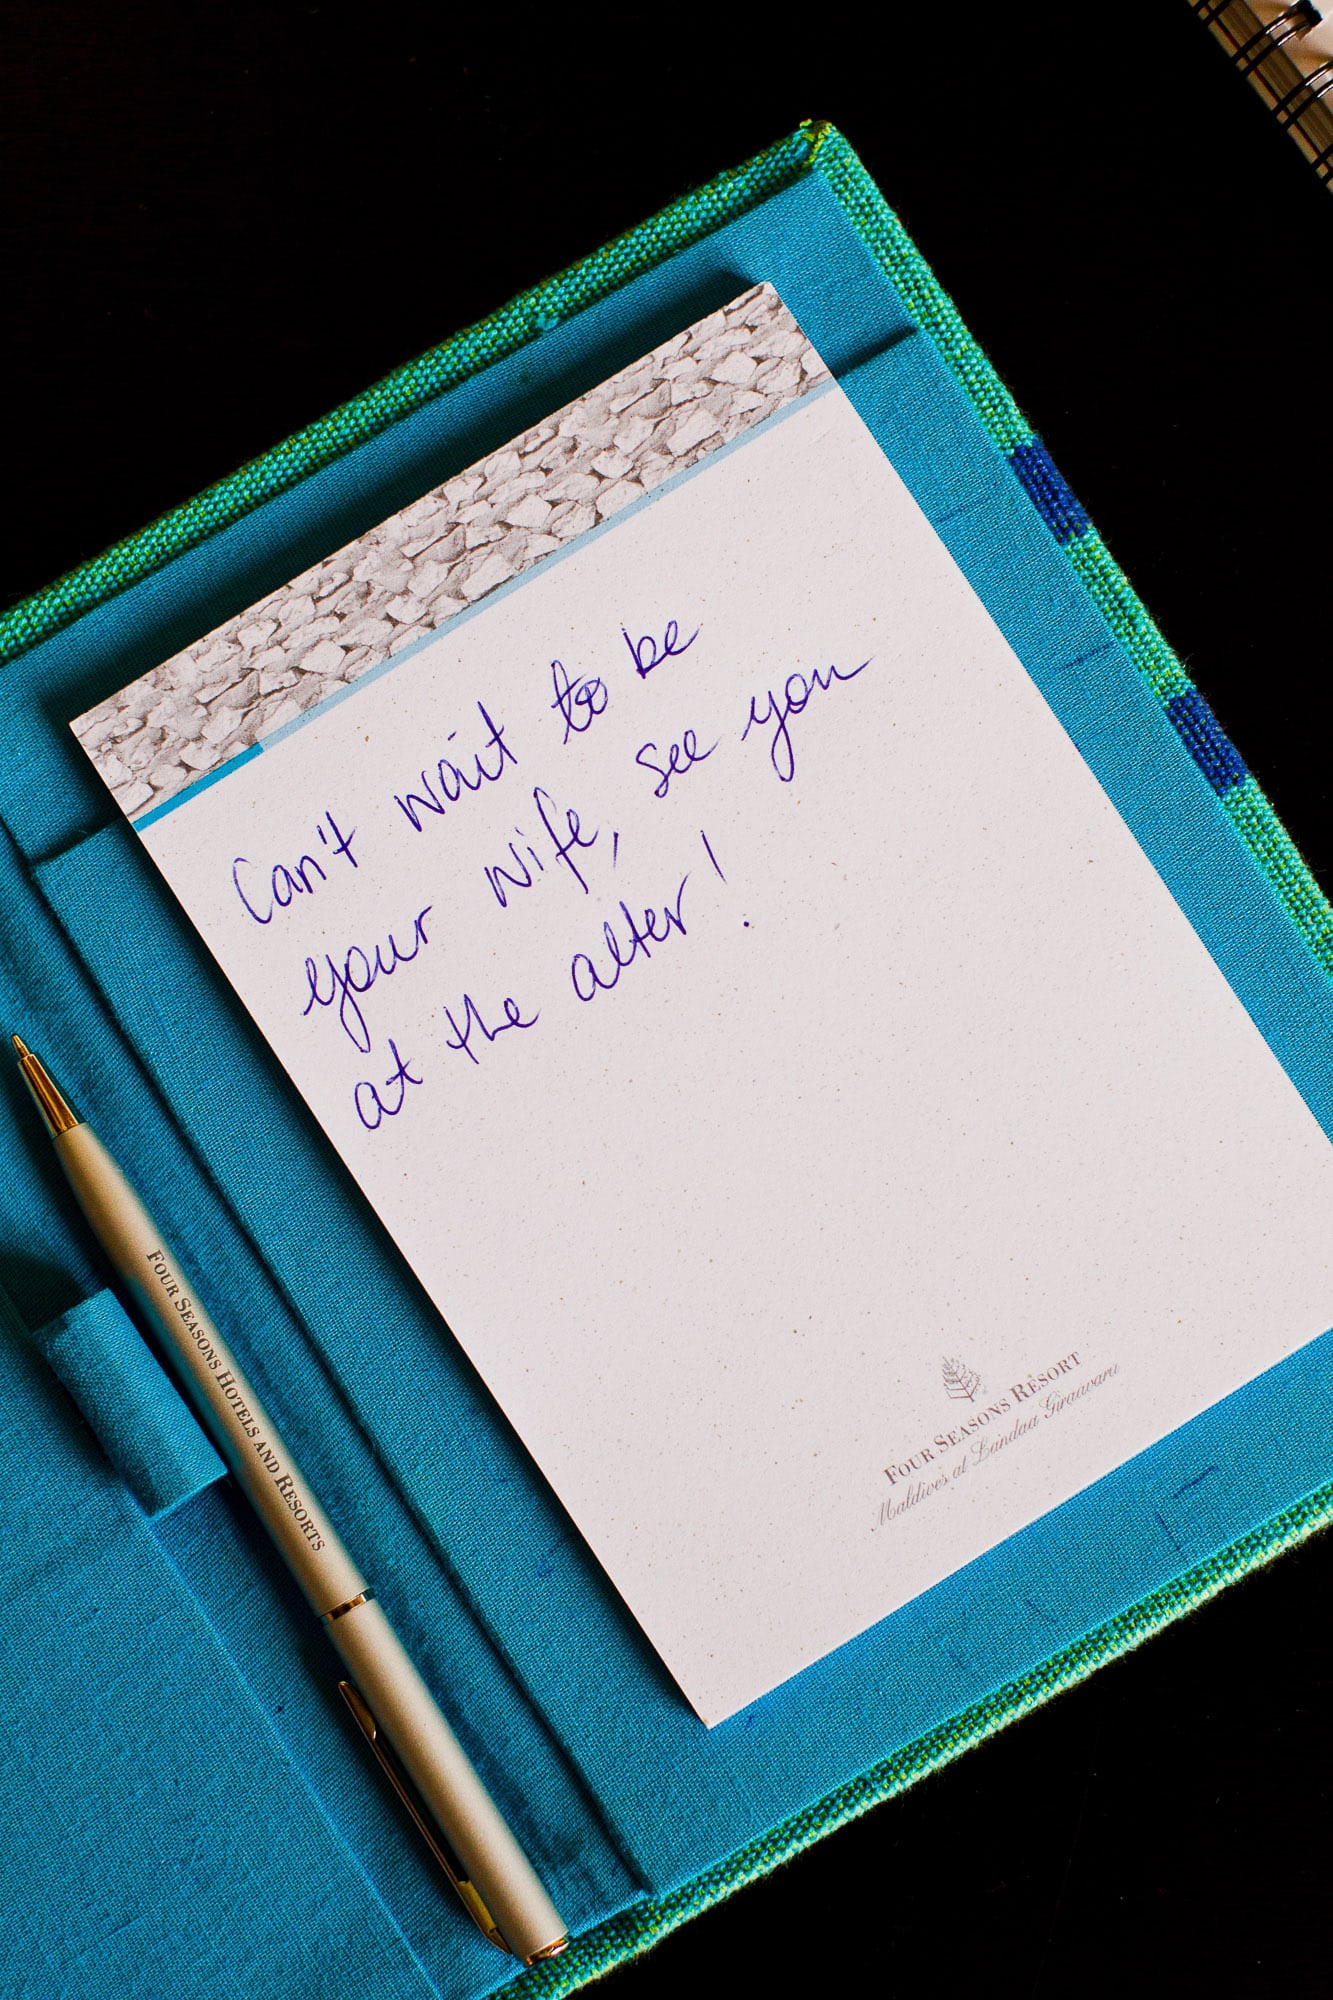 Can't wait to be
your wife, see you
at the alter!
FOUR SEASONS RESORT
Maldives at Landaa Giraavaru
FOUR SEASONS HOTELS AND RESORTS